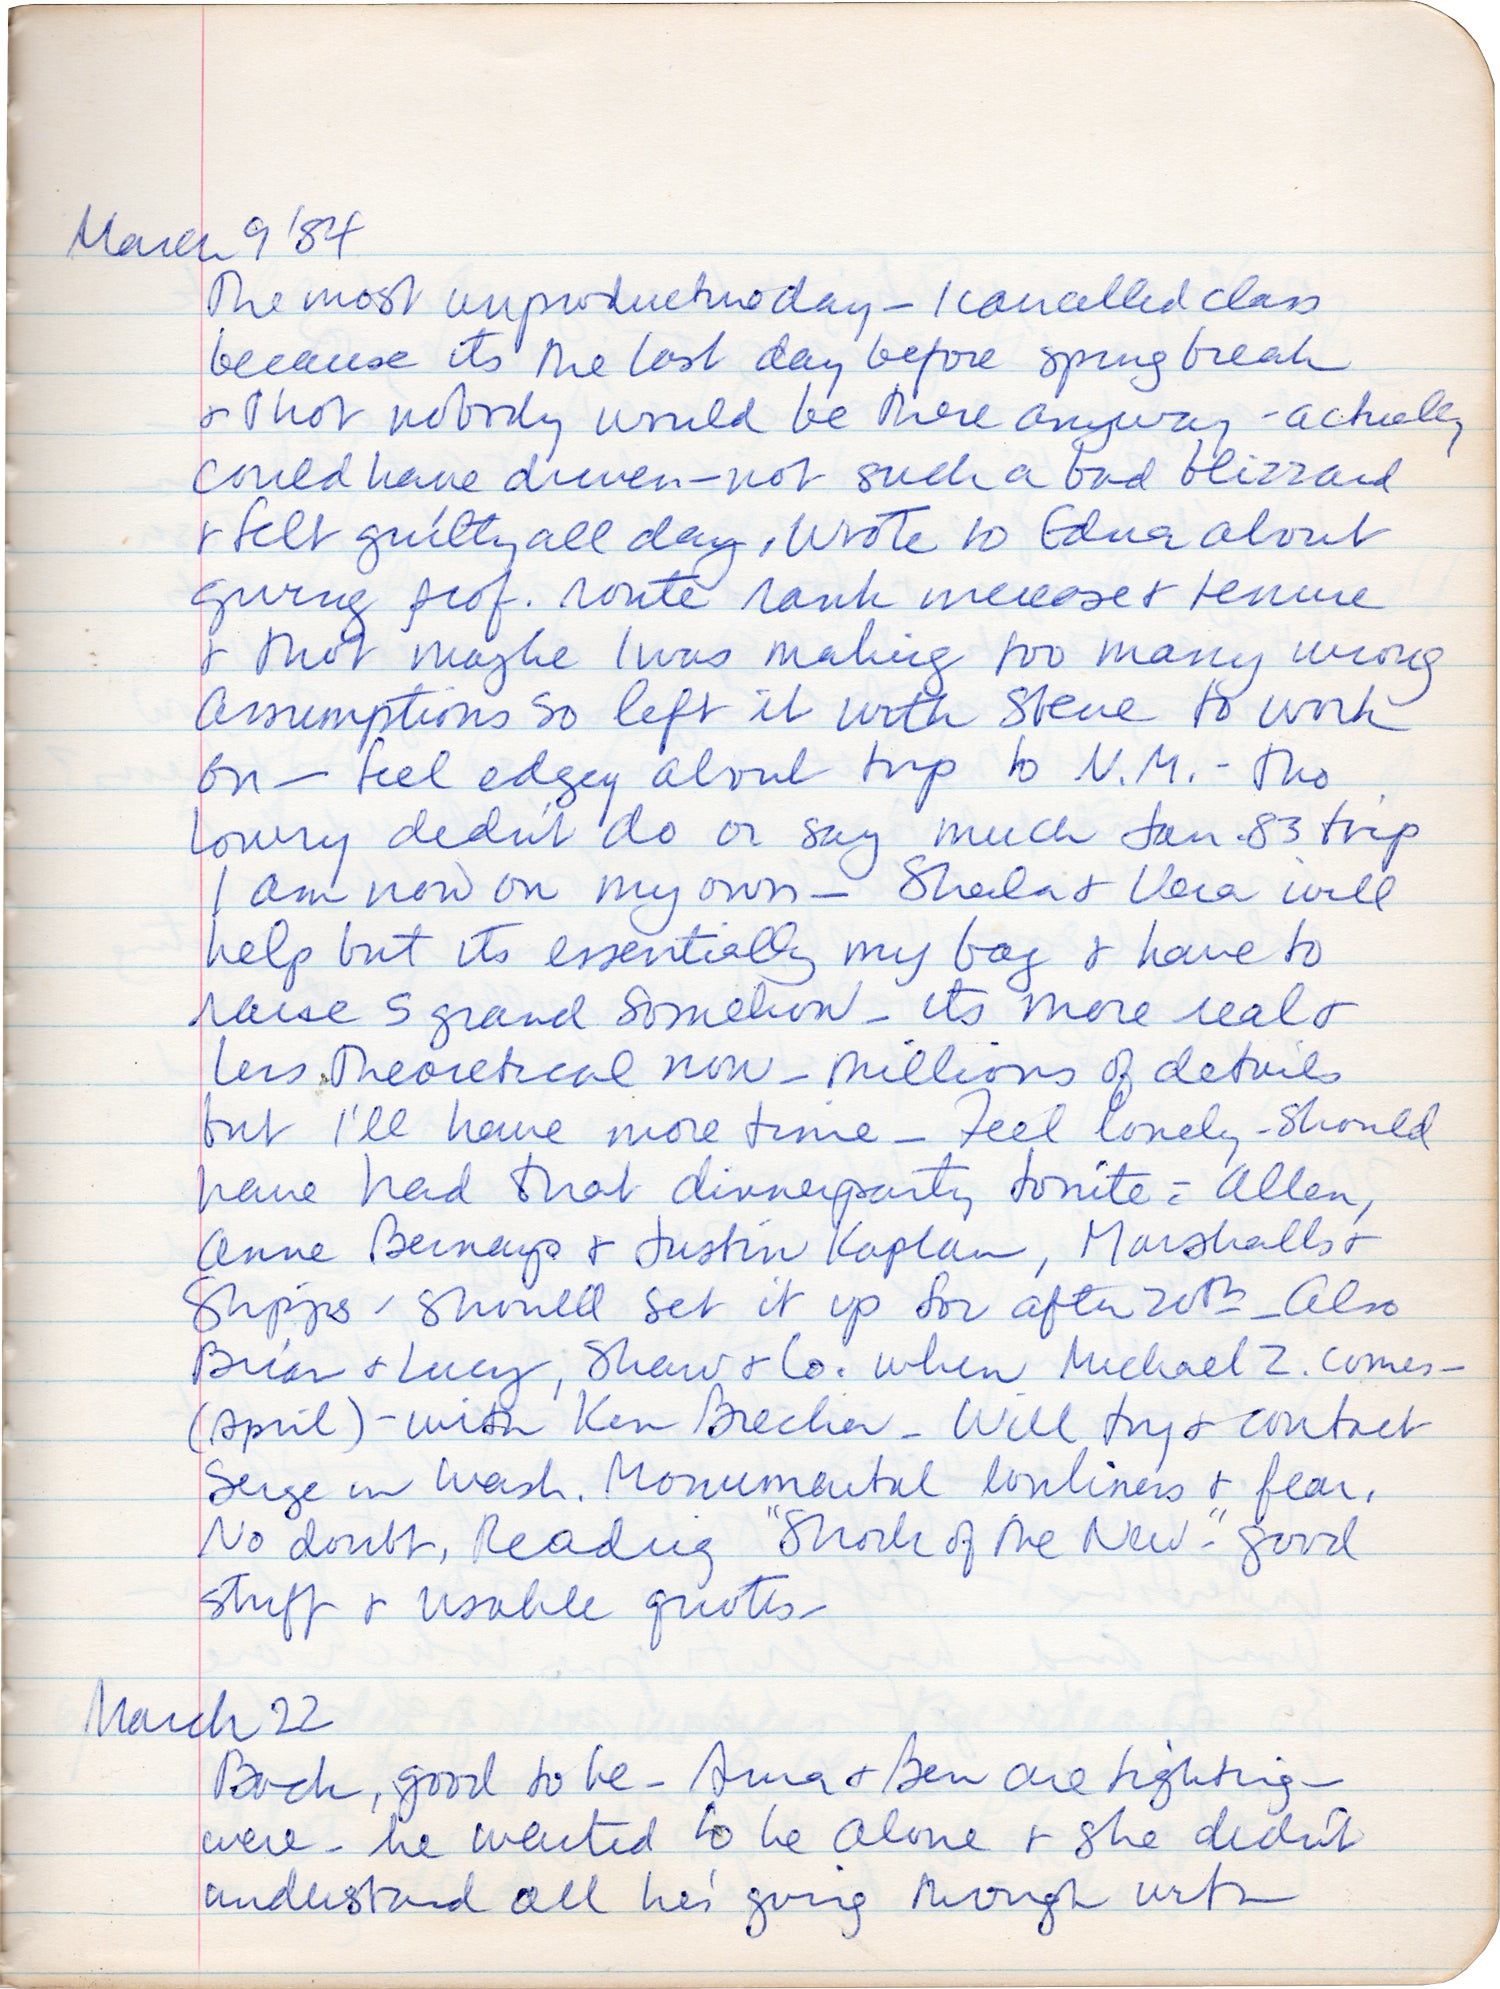 March 9 '84
The most unproductive day – I cancelled class
because its the last day before spring break
& that nobody would be there anyway – actually
could have driven – not such a bad blizzard
& felt guilty all day. Wrote to Edna about
going prof. route rank increase & tenure
& that maybe I was making too many wrong
assumptions so left it with Steve to work
on – feel edgey about trip to N.M. – tho
Lowry didn't do or say much Jan. 83 trip
I am now on my own – Sheila & Vera will
help but its essentially my bag & have to
raise 5 grand somehow – its more real &
less theoretical now – millions of details
but I'll have more time – Feel lonely – should
have had that dinnerparty tonite = Allen,
Anne Bernays & Justin Kaplan, Marshalls &
Shipps – should set it up for after 20th – Also
Brian & Lucy, Shaw & Co. when Michael Z. comes –
(April) – with Ken Brecher – Will try & contact
Serge in Wash. Monumental lonliness & fear.
No doubt, Reading "Shock of the New" – good
stuff & usable quotes –
March 22
Back, good to be – Anna & Ben are fighting –
were – he wanted to be alone & she didn't
understand all he's going through with